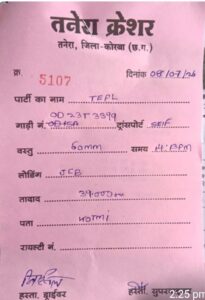 तनेरा क्रेशर
तनेरा, जिला-कोरबा (छ.ग.)
क्र. 5107 दिनांक 08/07/26
पार्टी का नाम TEPL
गाड़ी नं. OD23J 3399 ट्रांसपोर्ट SELF
वस्तु 60mm समय
लोडिंग JCB
तादाद
पता
रायल्टी नं.
हस्ता. ड्राईवर हस्ता. सुपरवाइजर
2:25 pm